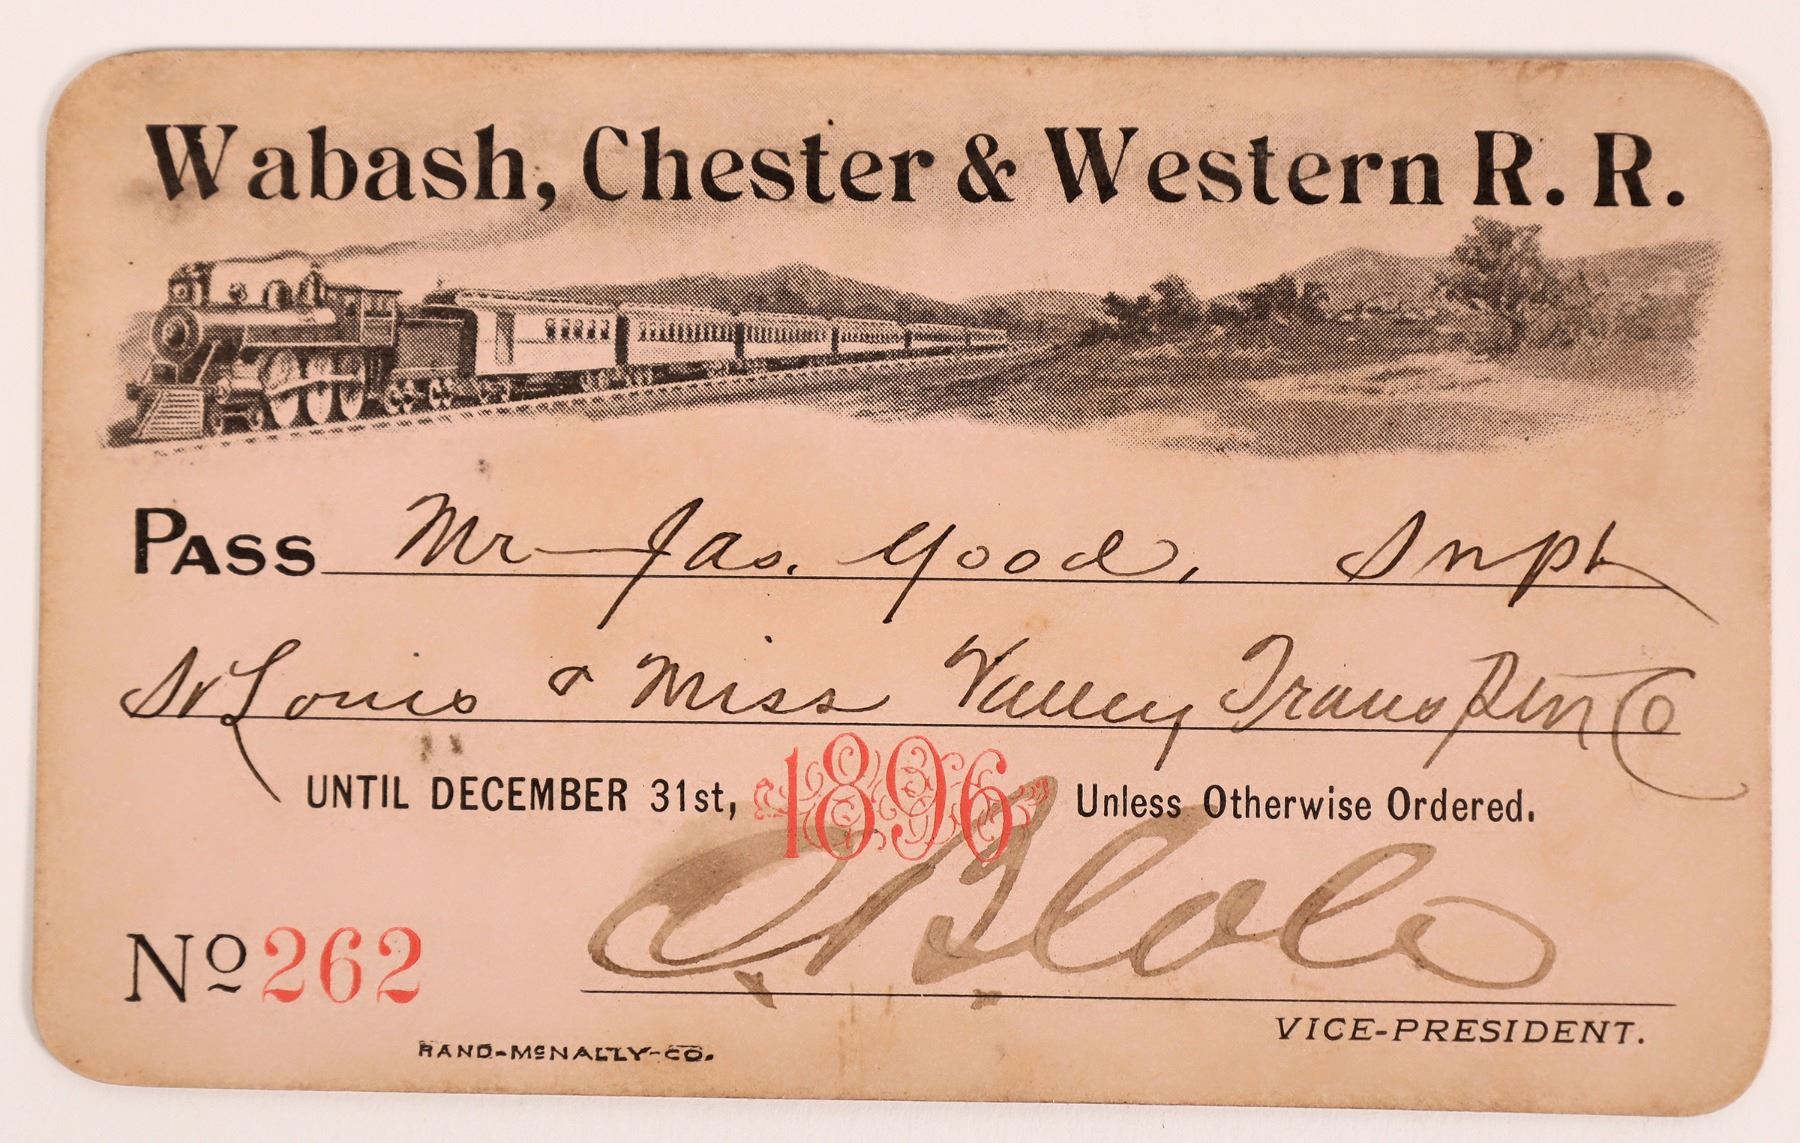 Wabash, Chester & Western R. R.
PASS Mr Jas. Good, Supt
St Louis & Miss Valley Transptn Co
UNTIL DECEMBER 31st, 1896 Unless Otherwise Ordered.
No 262
VICE-PRESIDENT.
RAND-McNALLY-CO.